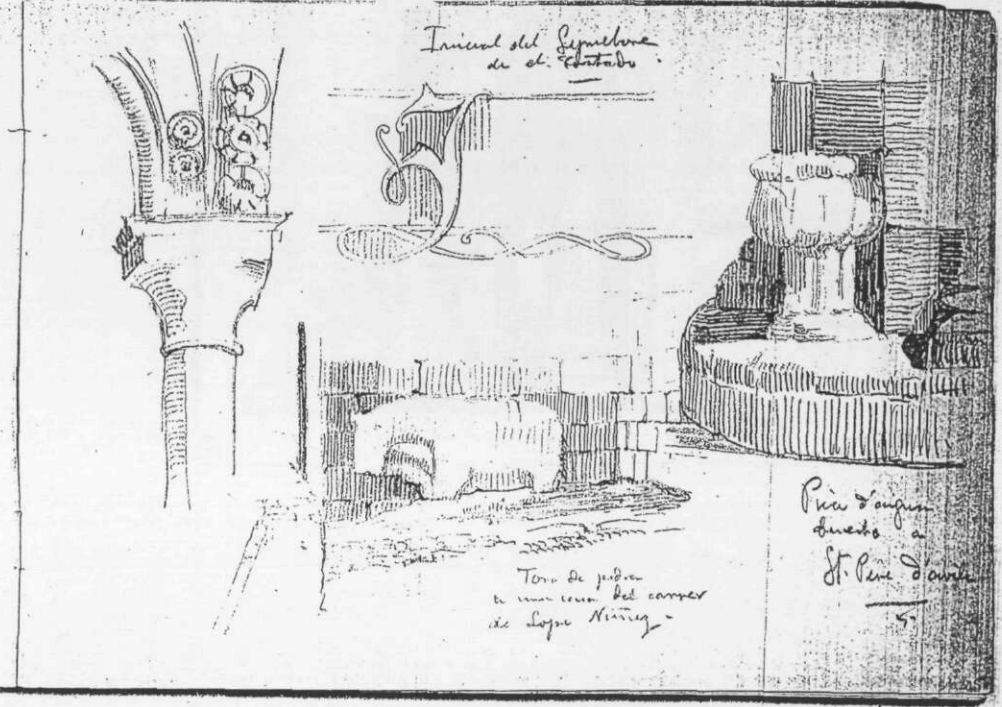 Inicial del Sepulcre
de el Tostado.
Toro de pedra
a una casa del carrer
de Lope Núñez.
Pica d'aigua
a
St. Pere d'avila